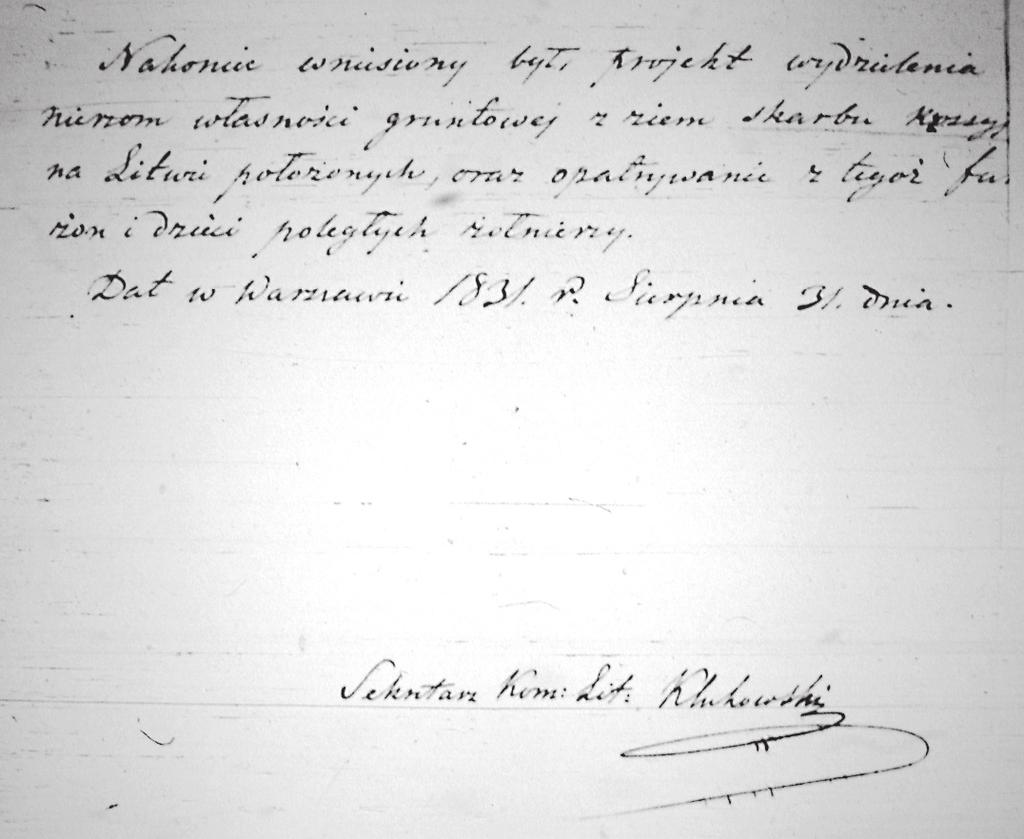 Nakoniec wniesiony był, projekt wydzielenia
nierzom własności gruntowej z ziem skarbu
na Litwie położonych, oraz opatrywanie z tegoż fu
żon i dzieci poległych żołnierzy.
Dat w Warszawie 1831. r. Sierpnia 31. dnia.
Sekretarz Kom: Lit: Klukowski